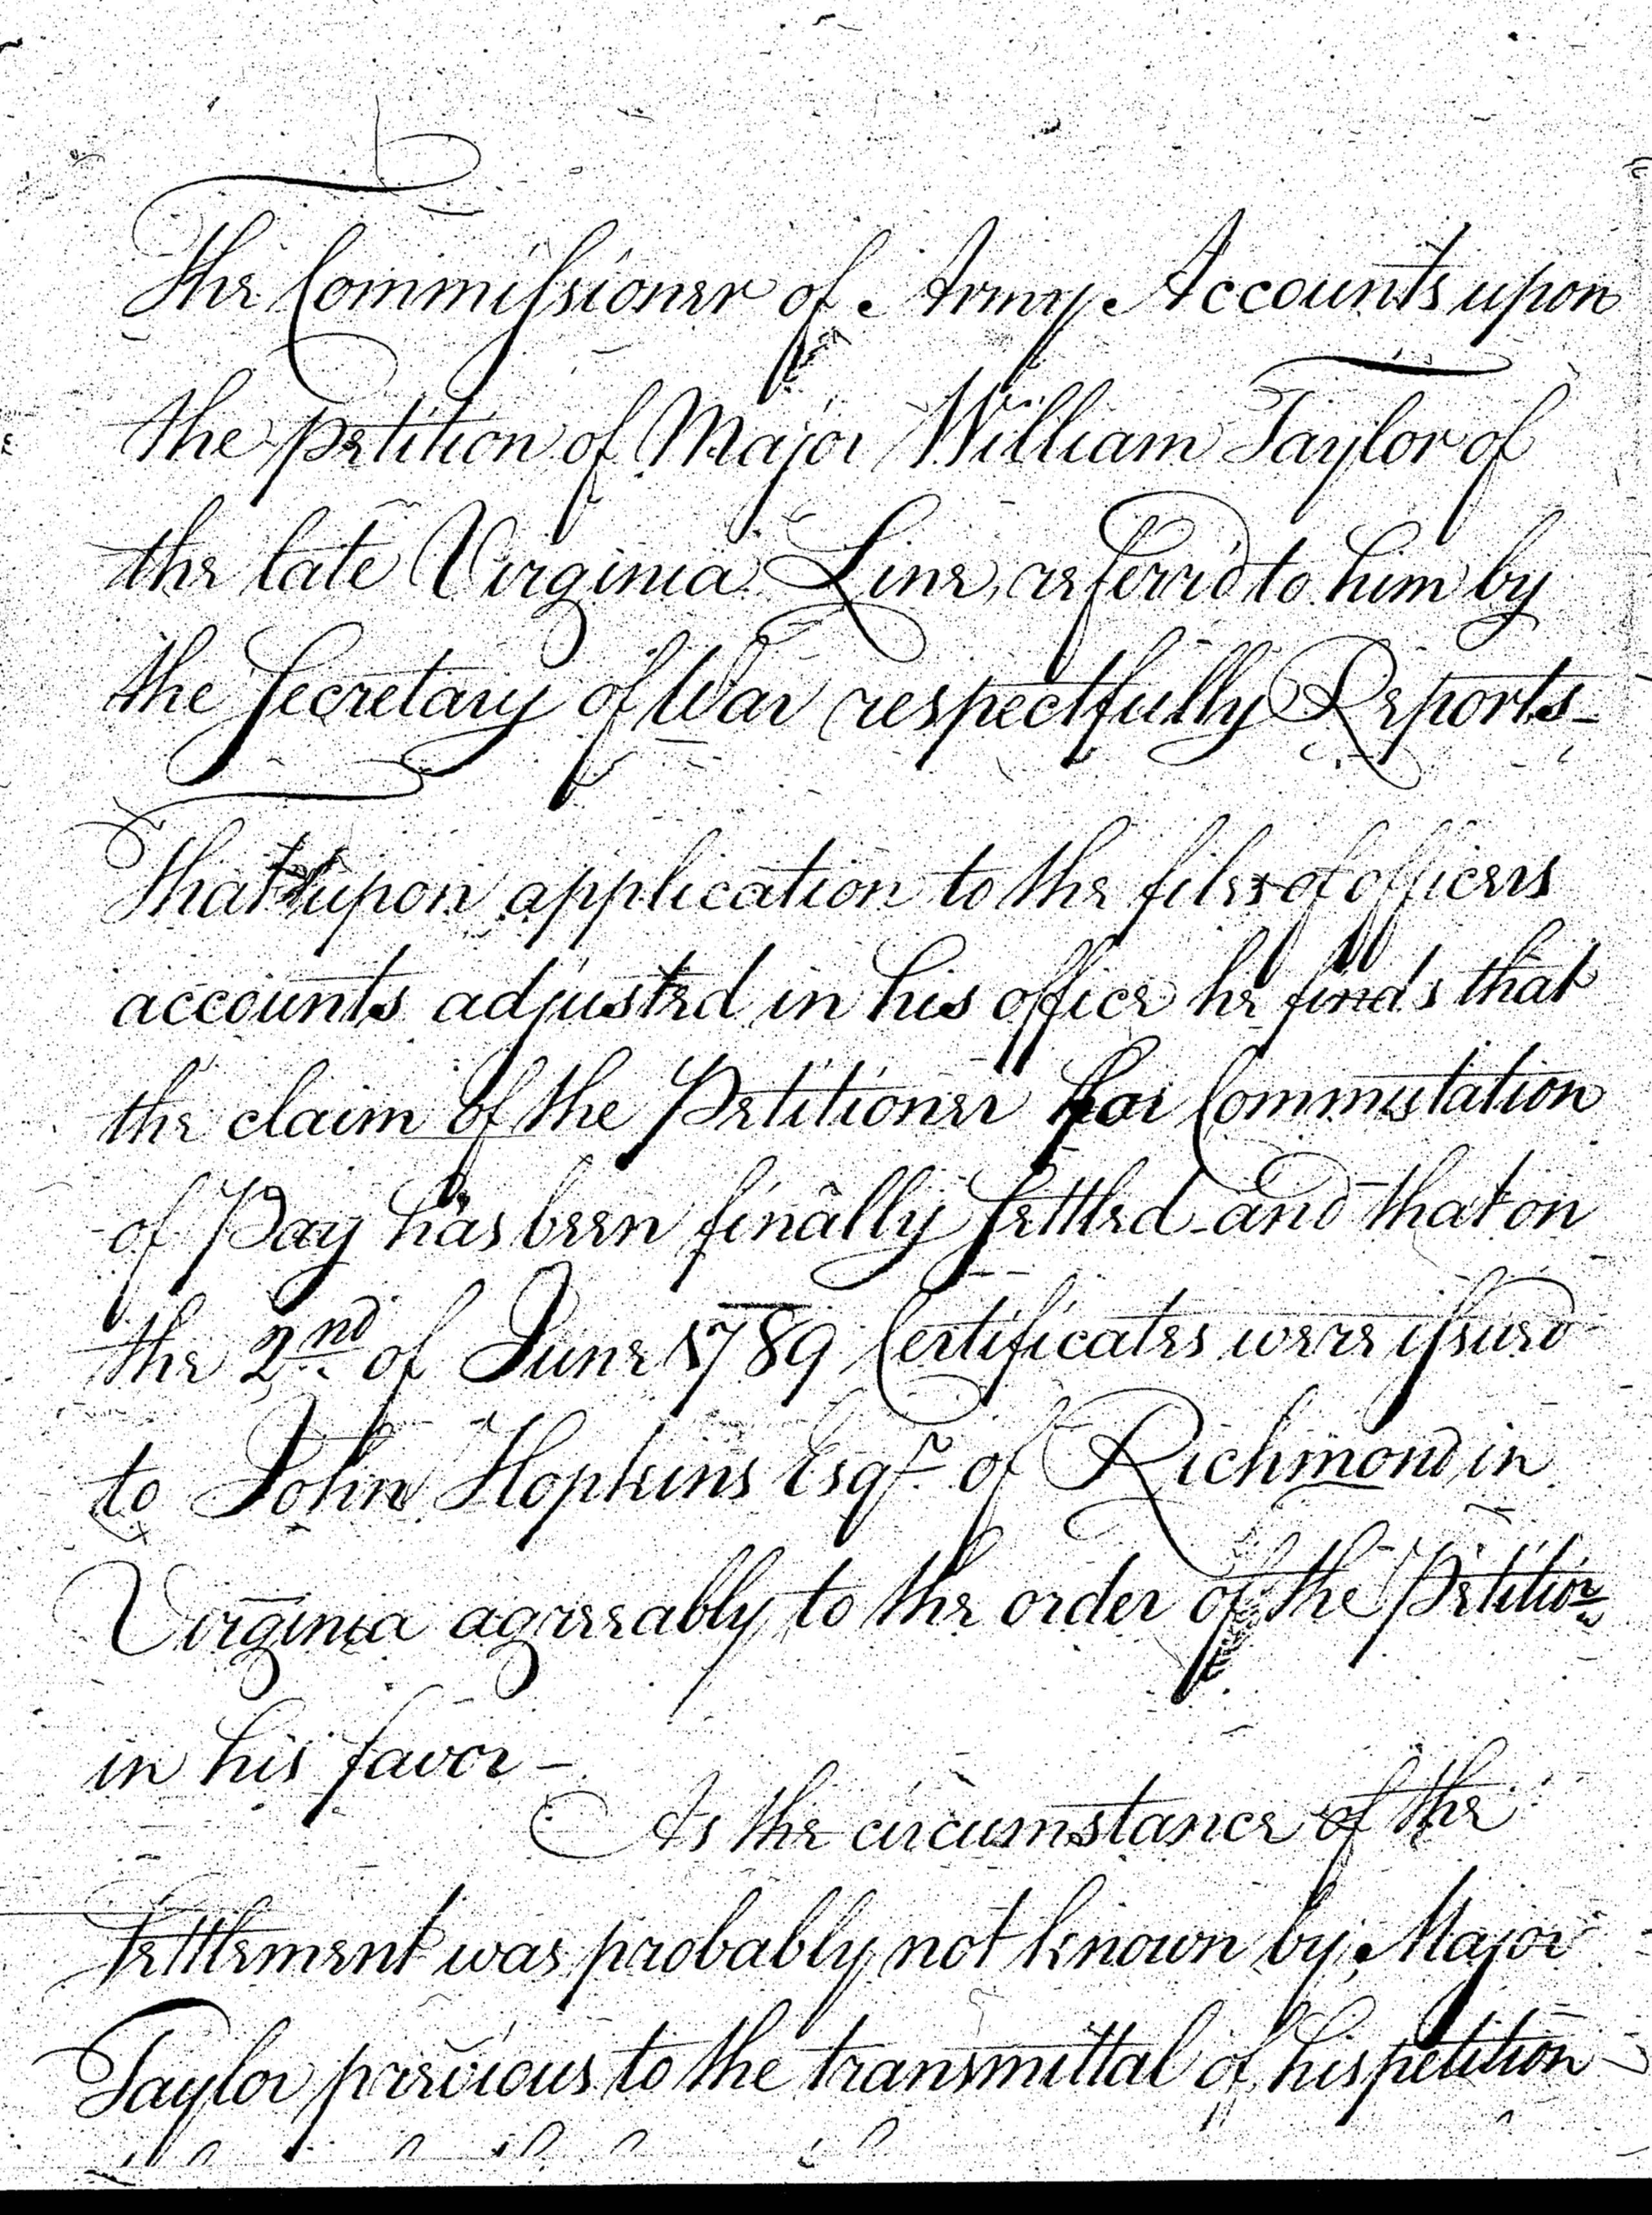 The Commissioner of Army Accounts upon
the petition of Major William Taylor of
the late Virginia Line, referr'd to him by
the Secretary of War respectfully Reports_
That upon application to the files of officers
accounts adjusted in his office he finds that
the claim of the Petitioner for Commutation
of Pay has been finally settled and that on
the 2nd of June 1789 Certificates were issued
to John Hopkins Esqr. of Richmond in
Virginia agreeably to the order of the Petitior
in his favor _
As the circumstance of the
settlement was probably not known by Major
Taylor previous to the transmittal of his petition